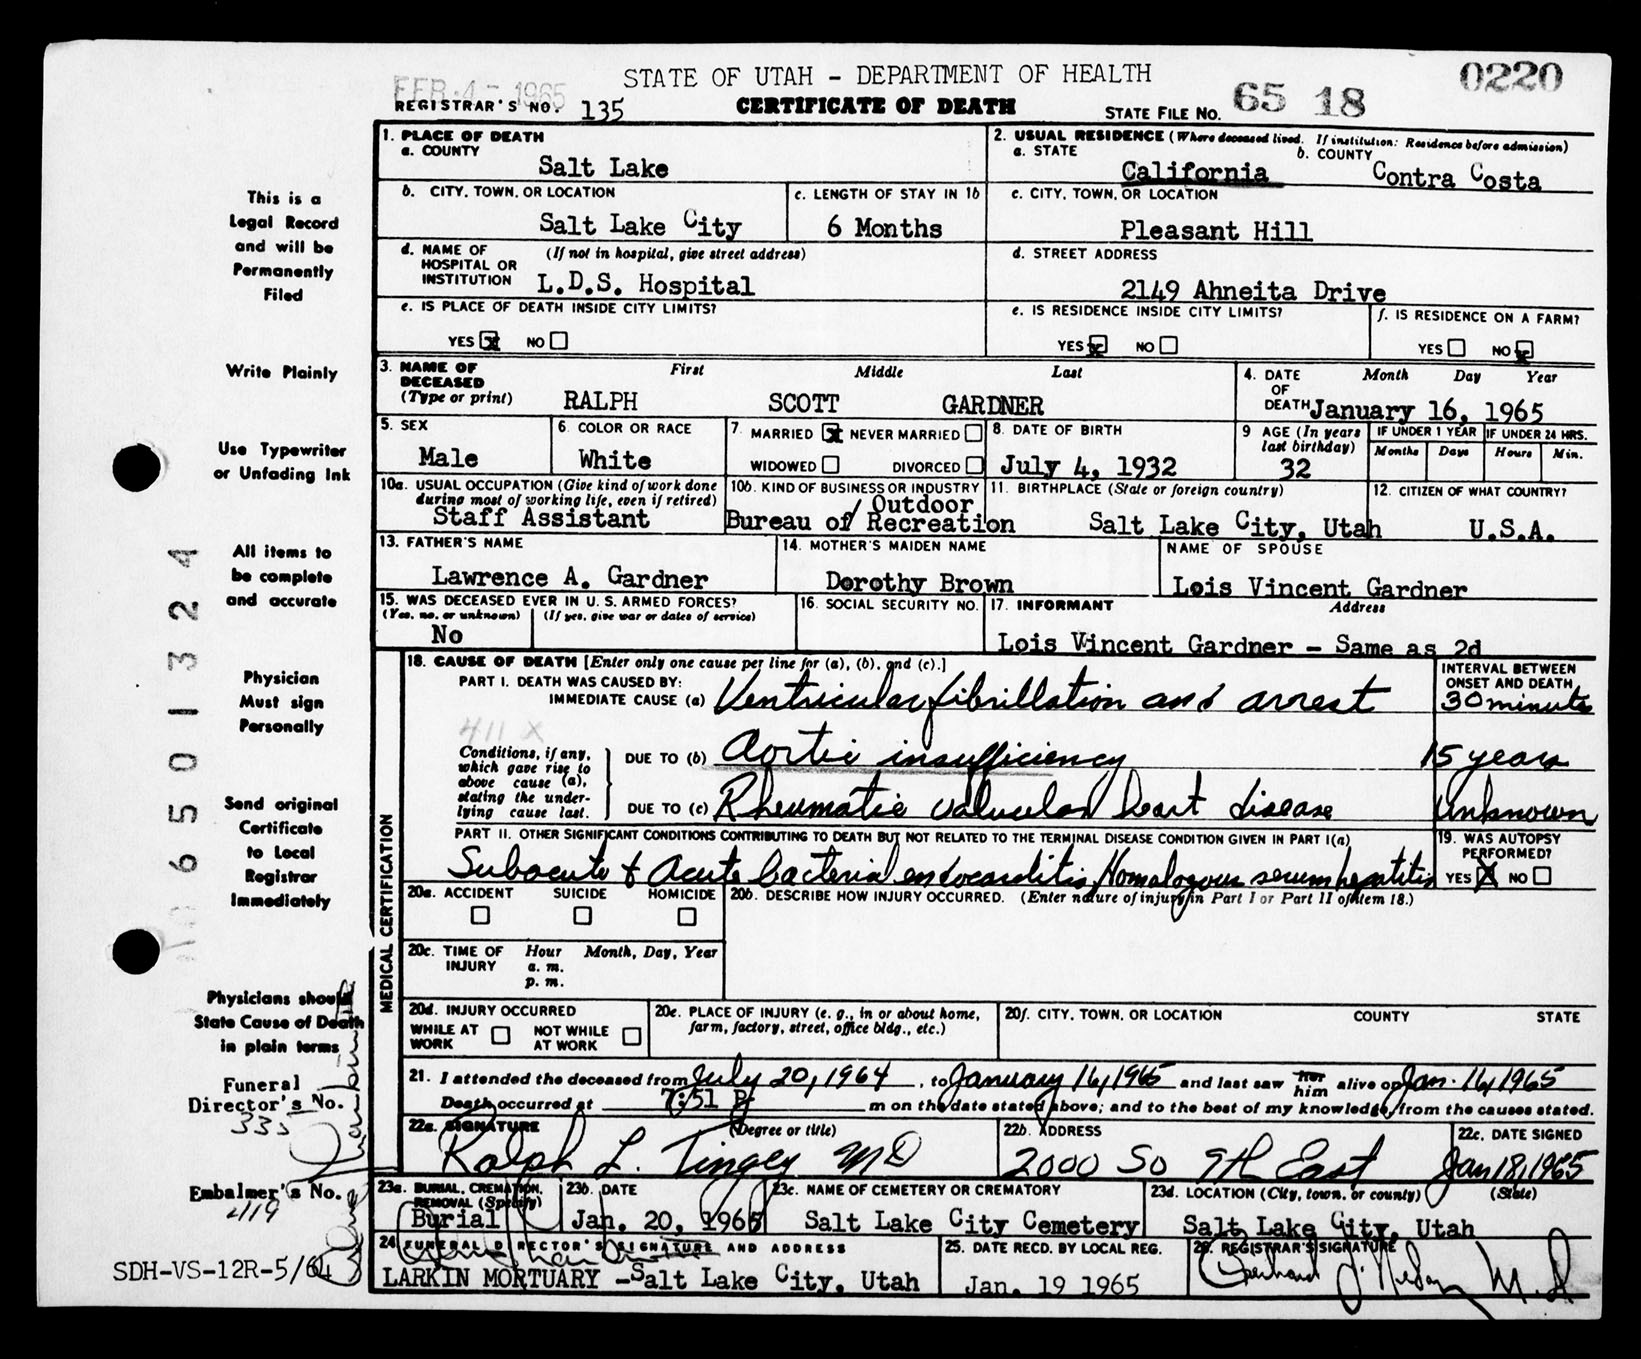 STATE OF UTAH - DEPARTMENT OF HEALTH
0220
FEB 4 - 1965
REGISTRAR'S NO. 135
CERTIFICATE OF DEATH
STATE FILE NO. 65 18
1. PLACE OF DEATH
a. COUNTY
Salt Lake
2. USUAL RESIDENCE (Where deceased lived. If institution: Residence before admission)
a. STATE California
b. COUNTY Contra Costa
b. CITY, TOWN, OR LOCATION
Salt Lake City
c. LENGTH OF STAY IN 1b
6 Months
c. CITY, TOWN, OR LOCATION
Pleasant Hill
d. NAME OF HOSPITAL OR INSTITUTION (If not in hospital, give street address)
L.D.S. Hospital
d. STREET ADDRESS
2149 Ahneita Drive
e. IS PLACE OF DEATH INSIDE CITY LIMITS?
YES X NO
e. IS RESIDENCE INSIDE CITY LIMITS?
YES X NO
f. IS RESIDENCE ON A FARM?
YES NO X
3. NAME OF DECEASED (Type or print)
First Middle Last
RALPH SCOTT GARDNER
4. DATE OF DEATH Month Day Year
January 16, 1965
5. SEX
Male
6. COLOR OR RACE
White
7. MARRIED X NEVER MARRIED
WIDOWED DIVORCED
8. DATE OF BIRTH
July 4, 1932
9 AGE (In years last birthday)
32
IF UNDER 1 YEAR
Months Days
IF UNDER 24 HRS.
Hours Min.
10a. USUAL OCCUPATION (Give kind of work done during most of working life, even if retired)
Staff Assistant
10b. KIND OF BUSINESS OR INDUSTRY
Bureau of / Outdoor Recreation
11. BIRTHPLACE (State or foreign country)
Salt Lake City, Utah
12. CITIZEN OF WHAT COUNTRY?
U.S.A.
13. FATHER'S NAME
Lawrence A. Gardner
14. MOTHER'S MAIDEN NAME
Dorothy Brown
NAME OF SPOUSE
Lois Vincent Gardner
15. WAS DECEASED EVER IN U. S. ARMED FORCES?
(Yes, no, or unknown) (If yes, give war or dates of service)
No
16. SOCIAL SECURITY NO.
17. INFORMANT Address
Lois Vincent Gardner - Same as 2d
MEDICAL CERTIFICATION
18. CAUSE OF DEATH [Enter only one cause per line for (a), (b), and (c).]
INTERVAL BETWEEN ONSET AND DEATH
PART I. DEATH WAS CAUSED BY:
IMMEDIATE CAUSE (a) Ventricular fibrillation and arrest 30 minutes
411 X
Conditions, if any, which gave rise to above cause (a), stating the underlying cause last.
DUE TO (b) Aortic insufficiency 15 years
DUE TO (c) Rheumatic valvular heart disease Unknown
PART II. OTHER SIGNIFICANT CONDITIONS CONTRIBUTING TO DEATH BUT NOT RELATED TO THE TERMINAL DISEASE CONDITION GIVEN IN PART I(a)
Subacute & Acute bacterial endocarditis, Homologous serum hepatitis
19. WAS AUTOPSY PERFORMED?
YES X NO
20a. ACCIDENT SUICIDE HOMICIDE
20b. DESCRIBE HOW INJURY OCCURRED. (Enter nature of injury in Part I or Part II of Item 18.)
20c. TIME OF INJURY Hour Month, Day, Year
a. m.
p. m.
20d. INJURY OCCURRED
WHILE AT WORK NOT WHILE AT WORK
20e. PLACE OF INJURY (e. g., in or about home, farm, factory, street, office bldg., etc.)
20f. CITY, TOWN, OR LOCATION COUNTY STATE
21. I attended the deceased from July 20, 1964, to January 16, 1965 and last saw her him alive on Jan. 16, 1965
Death occurred at 7:51 P. m on the date stated above; and to the best of my knowledge, from the causes stated.
22a. SIGNATURE (Degree or title)
Ralph L. Tingey MD
22b. ADDRESS
2000 So 9th East
22c. DATE SIGNED
Jan 18, 1965
23a. BURIAL, CREMATION, REMOVAL (Specify)
Burial
23b. DATE
Jan. 20, 1965
23c. NAME OF CEMETERY OR CREMATORY
Salt Lake City Cemetery
23d. LOCATION (City, town, or county) (State)
Salt Lake City, Utah
24 FUNERAL DIRECTOR'S SIGNATURE AND ADDRESS
LARKIN MORTUARY -Salt Lake City, Utah
25. DATE RECD. BY LOCAL REG.
Jan. 19 1965
26. REGISTRAR'S SIGNATURE
This is a
Legal Record
and will be
Permanently
Filed
Write Plainly
Use Typewriter
or Unfading Ink
All items to
be complete
and accurate
Physician
Must sign
Personally
Send original
Certificate
to Local
Registrar
Immediately
Physicians should
State Cause of Death
in plain terms
Funeral
Director's No.
335
Embalmer's No.
419
SDH-VS-12R-5/64
6501324